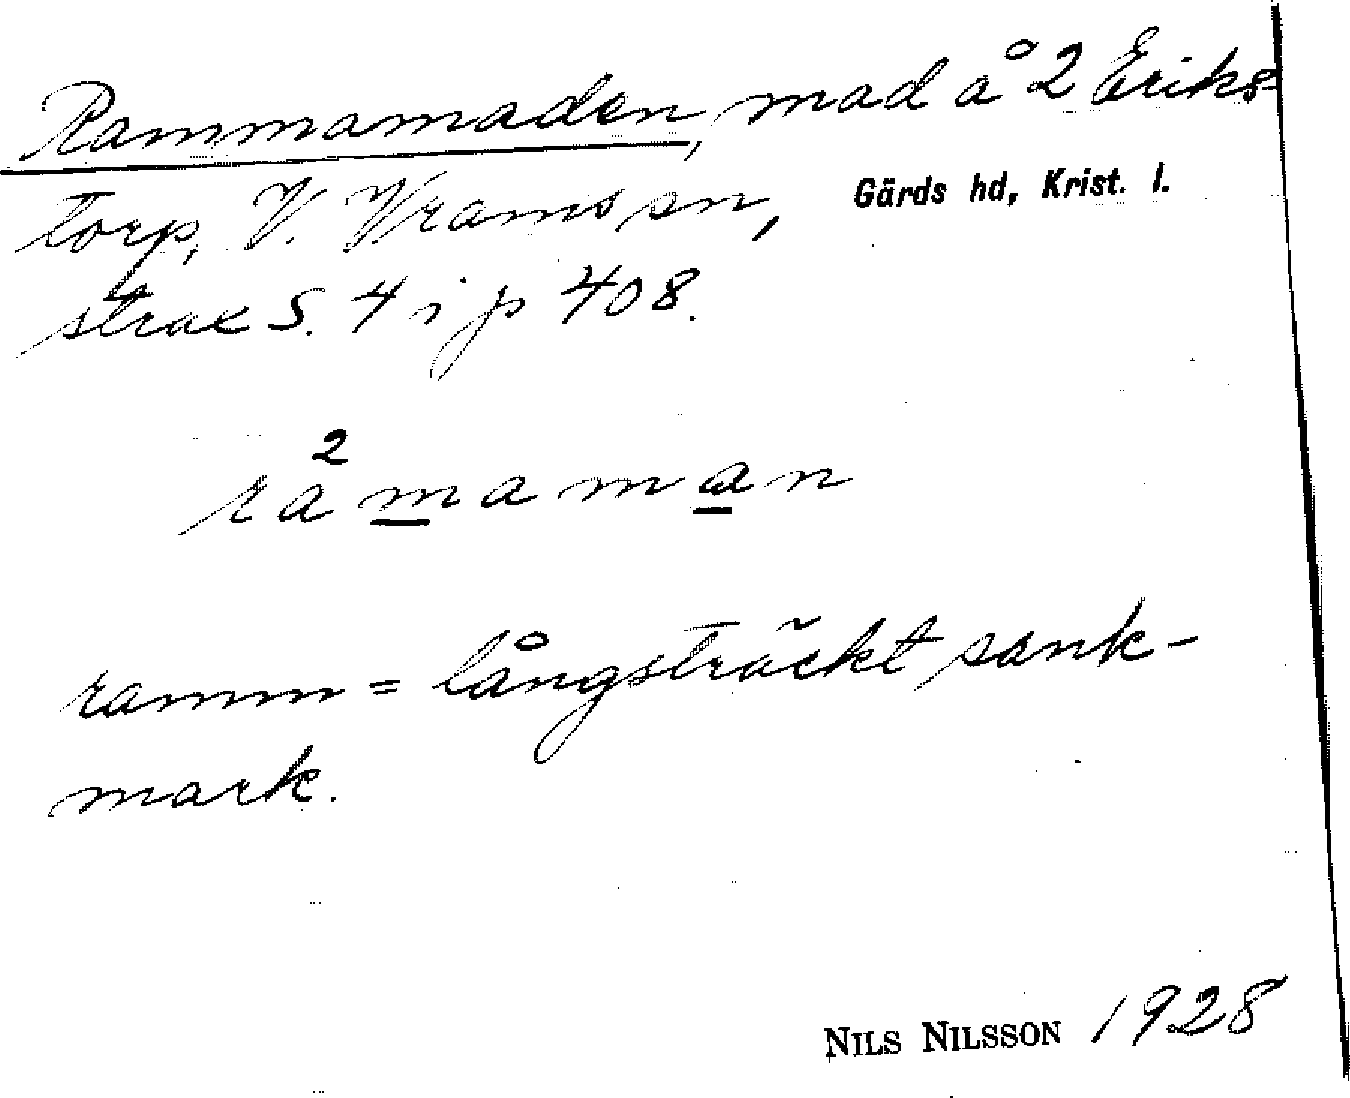 Rammamaden, mad å 2 Eriks-
torp, V. Vrams sn, Gärds hd, Krist. l.
strax S. 4 i p 408.
2
råmaman
ramm = långsträckt sank-
mark.
NILS NILSSON 1928